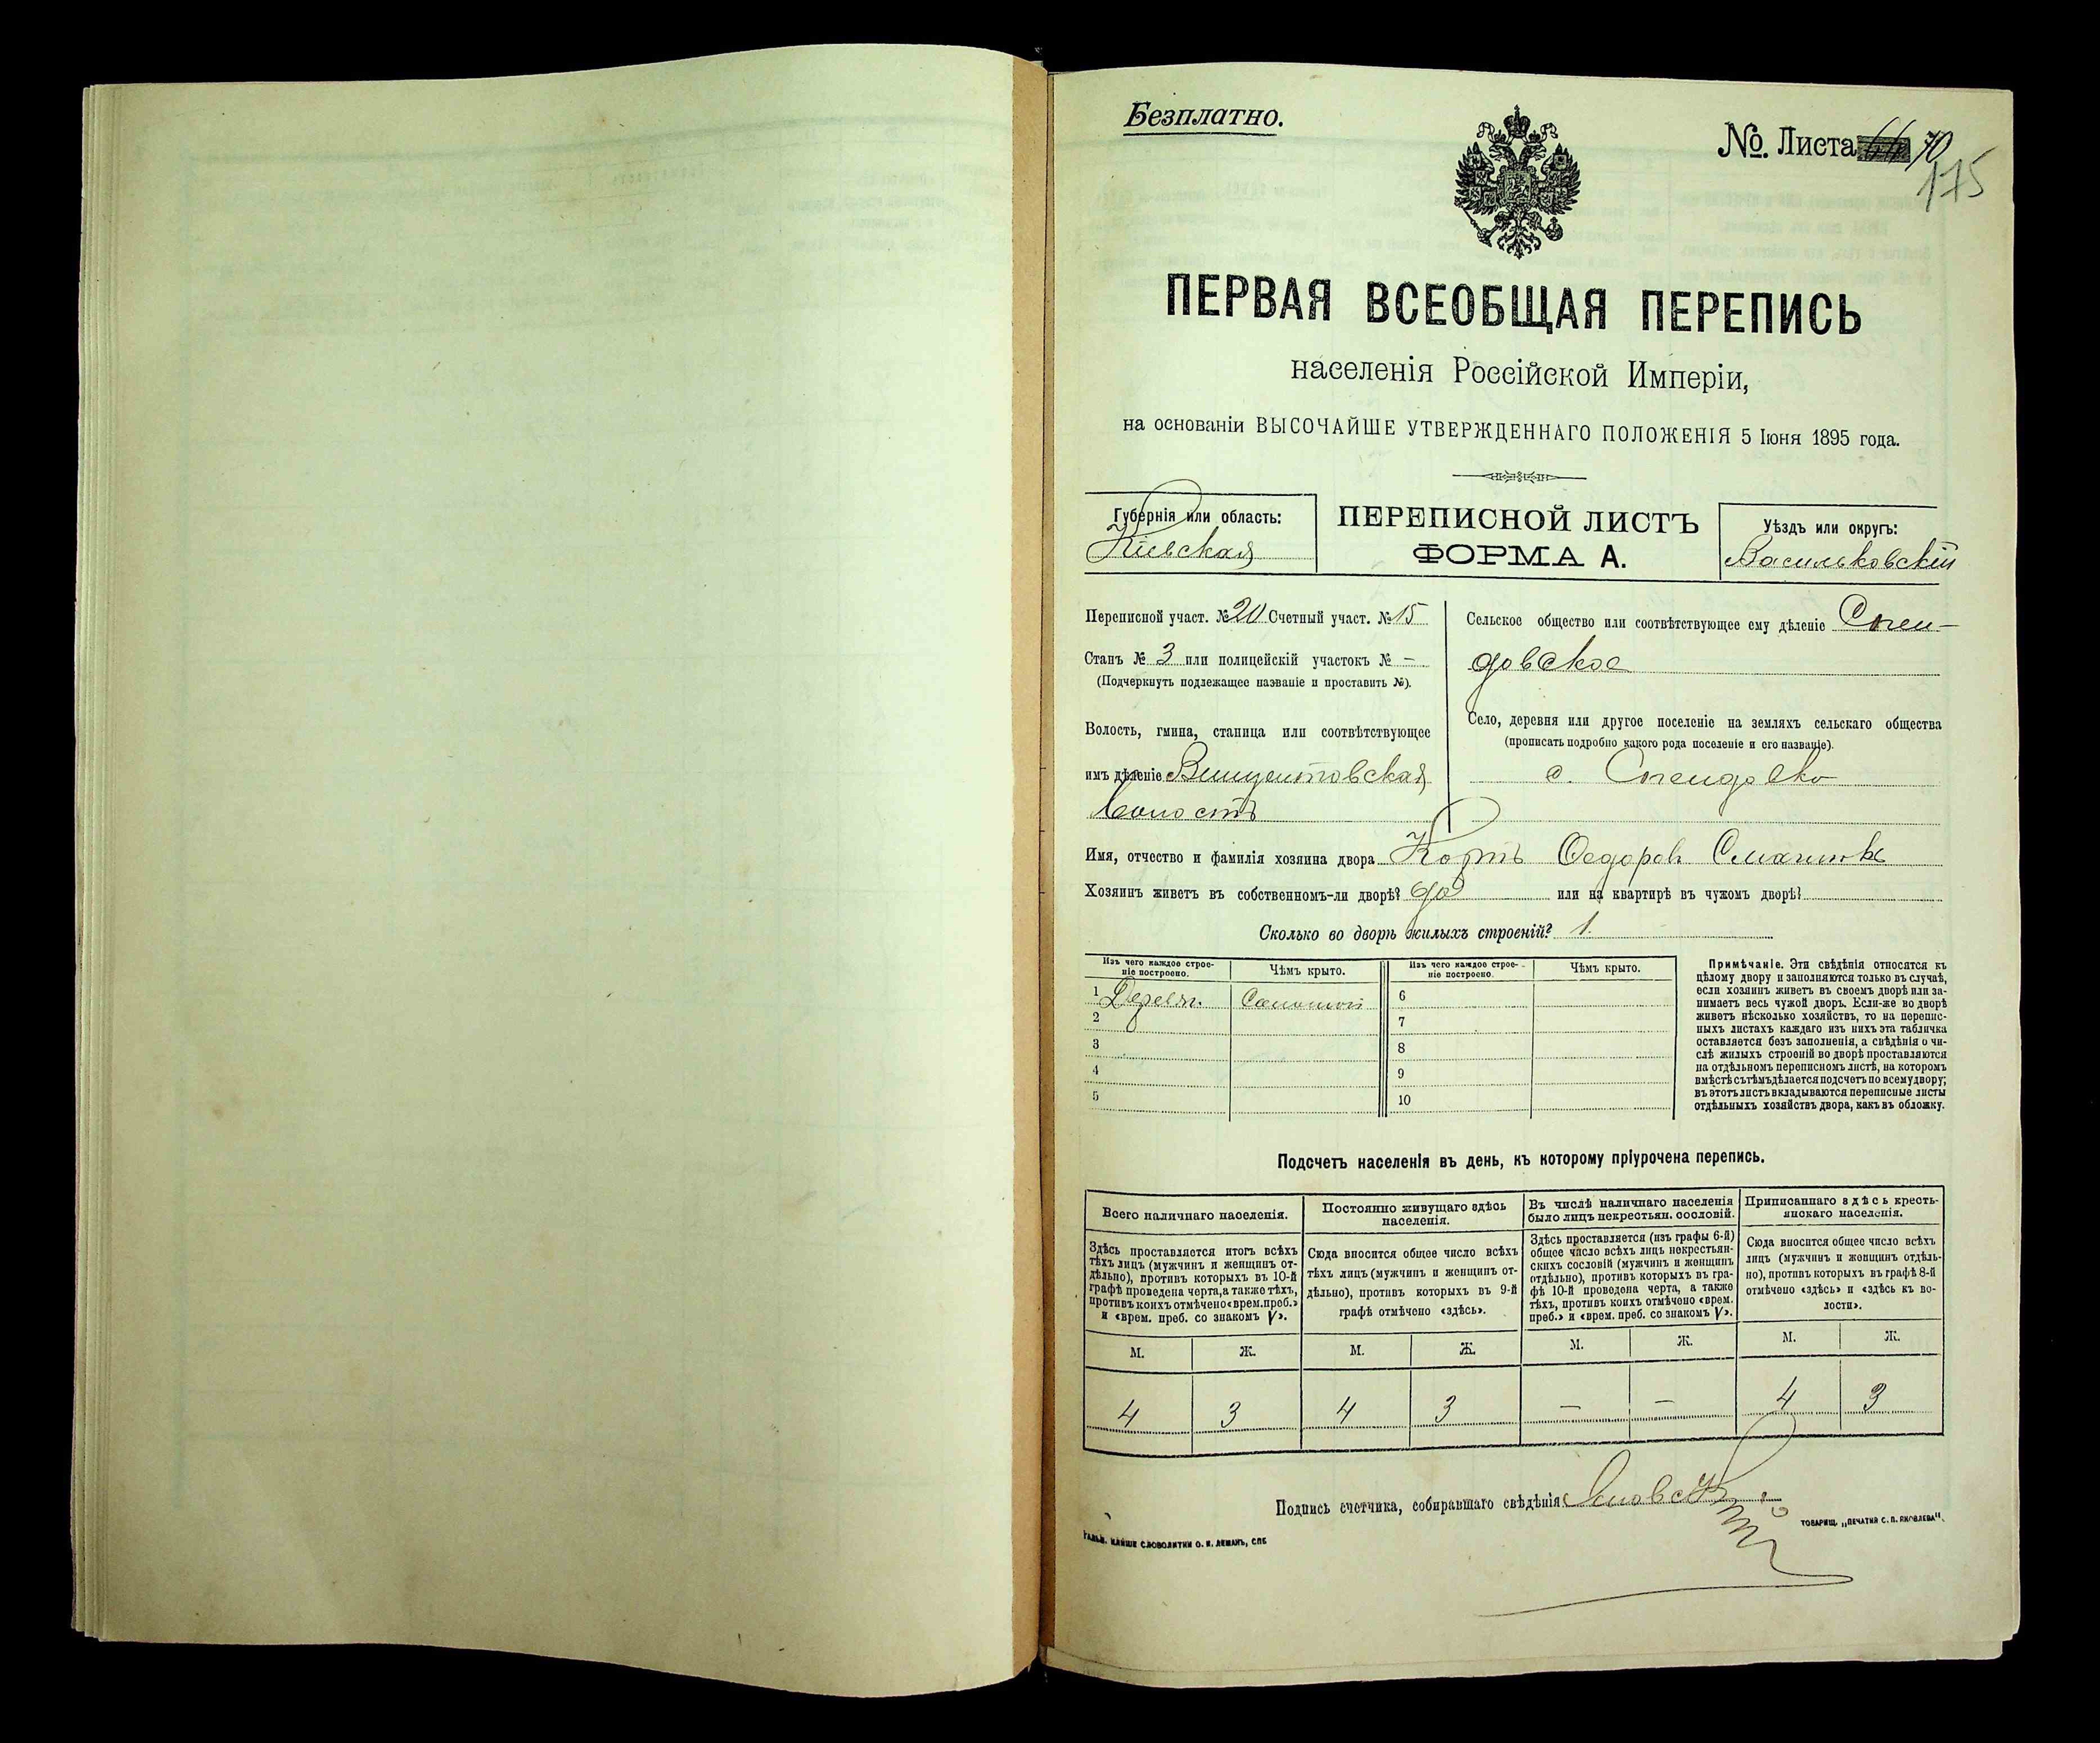 Безплатно.
№ Листа 66 70
175
ПЕРВАЯ ВСЕОБЩАЯ ПЕРЕПИСЬ
населенія Россійской Имперіи,
на основаніи ВЫСОЧАЙШЕ УТВЕРЖДЕННАГО ПОЛОЖЕНІЯ 5 Іюня 1895 года.
Губернія или область:
Кіевская
ПЕРЕПИСНОЙ ЛИСТЪ
ФОРМА А.
Уѣздъ или округъ:
Васильковскій
Переписной участ. № 20 Счетный участ. № 15
Станъ № 3 или полицейскій участокъ № —
(Подчеркнуть подлежащее названіе и проставить №).
Волость, гмина, станица или соотвѣтствующее
имъ дѣленіе Винцентовская
волость
Сельское общество или соотвѣтствующее ему дѣленіе Спен-
довское
Село, деревня или другое поселеніе на земляхъ сельскаго общества
(прописать подробно какого рода поселеніе и его названіе).
с. Спендовко
Имя, отчество и фамилія хозяина двора Федоров
Хозяинъ живетъ въ собственномъ-ли дворѣ? да или на квартирѣ въ чужомъ дворѣ?
Сколько во дворѣ жилыхъ строеній? 1.
Изъ чего каждое строе-
ніе построено.
Чѣмъ крыто.
Изъ чего каждое строе-
ніе построено.
Чѣмъ крыто.
1 Дерев. Соломой
2
3
4
5
6
7
8
9
10
Примѣчаніе. Эти свѣдѣнія относятся къ
цѣлому двору и заполняются только въ случаѣ,
если хозяинъ живетъ въ своемъ дворѣ или за-
нимаетъ весь чужой дворъ. Если-же во дворѣ
живетъ нѣсколько хозяйствъ, то на перепис-
ныхъ листахъ каждаго изъ нихъ эта табличка
оставляется безъ заполненія, а свѣдѣнія о чи-
слѣ жилыхъ строеній во дворѣ проставляются
на отдѣльномъ переписномъ листѣ, на которомъ
вмѣстѣ съ тѣмъ дѣлается подсчетъ по всему двору;
въ этотъ листъ вкладываются переписные листы
отдѣльныхъ хозяйствъ двора, какъ въ обложку.
Подсчетъ населенія въ день, къ которому пріурочена перепись.
Всего наличнаго населенія.
Постоянно живущаго здѣсь
населенія.
Въ числѣ наличнаго населенія
было лицъ некрестьян. сословій.
Приписаннаго здѣсь кресть-
янскаго населенія.
Здѣсь проставляется итогъ всѣхъ
тѣхъ лицъ (мужчинъ и женщинъ от-
дѣльно), противъ которыхъ въ 10-й
графѣ проведена черта, а также тѣхъ,
противъ коихъ отмѣчено «врем. преб.»
и «врем. преб. со знакомъ V».
Сюда вносится общее число всѣхъ
тѣхъ лицъ (мужчинъ и женщинъ от-
дѣльно), противъ которыхъ въ 9-й
графѣ отмѣчено «здѣсь».
Здѣсь проставляется (изъ графы 6-й)
общее число всѣхъ лицъ некрестьян-
скихъ сословій (мужчинъ и женщинъ
отдѣльно), противъ которыхъ въ гра-
фѣ 10-й проведена черта, а также
тѣхъ, противъ коихъ отмѣчено «врем.
преб.» и «врем. преб. со знакомъ V».
Сюда вносится общее число всѣхъ
лицъ (мужчинъ и женщинъ отдѣль-
но), противъ которыхъ въ графѣ 8-й
отмѣчено «здѣсь» и «здѣсь къ во-
лости».
М. Ж. М. Ж. М. Ж. М. Ж.
4 3 4 3 — — 4 3
Подпись счетчика, собиравшаго свѣдѣнія
СЛОВОЛИТНИ О. И. ЛЕМАНЪ, СПБ
ТОВАРИЩ. „ПЕЧАТНЯ С. П. ЯКОВЛЕВА".